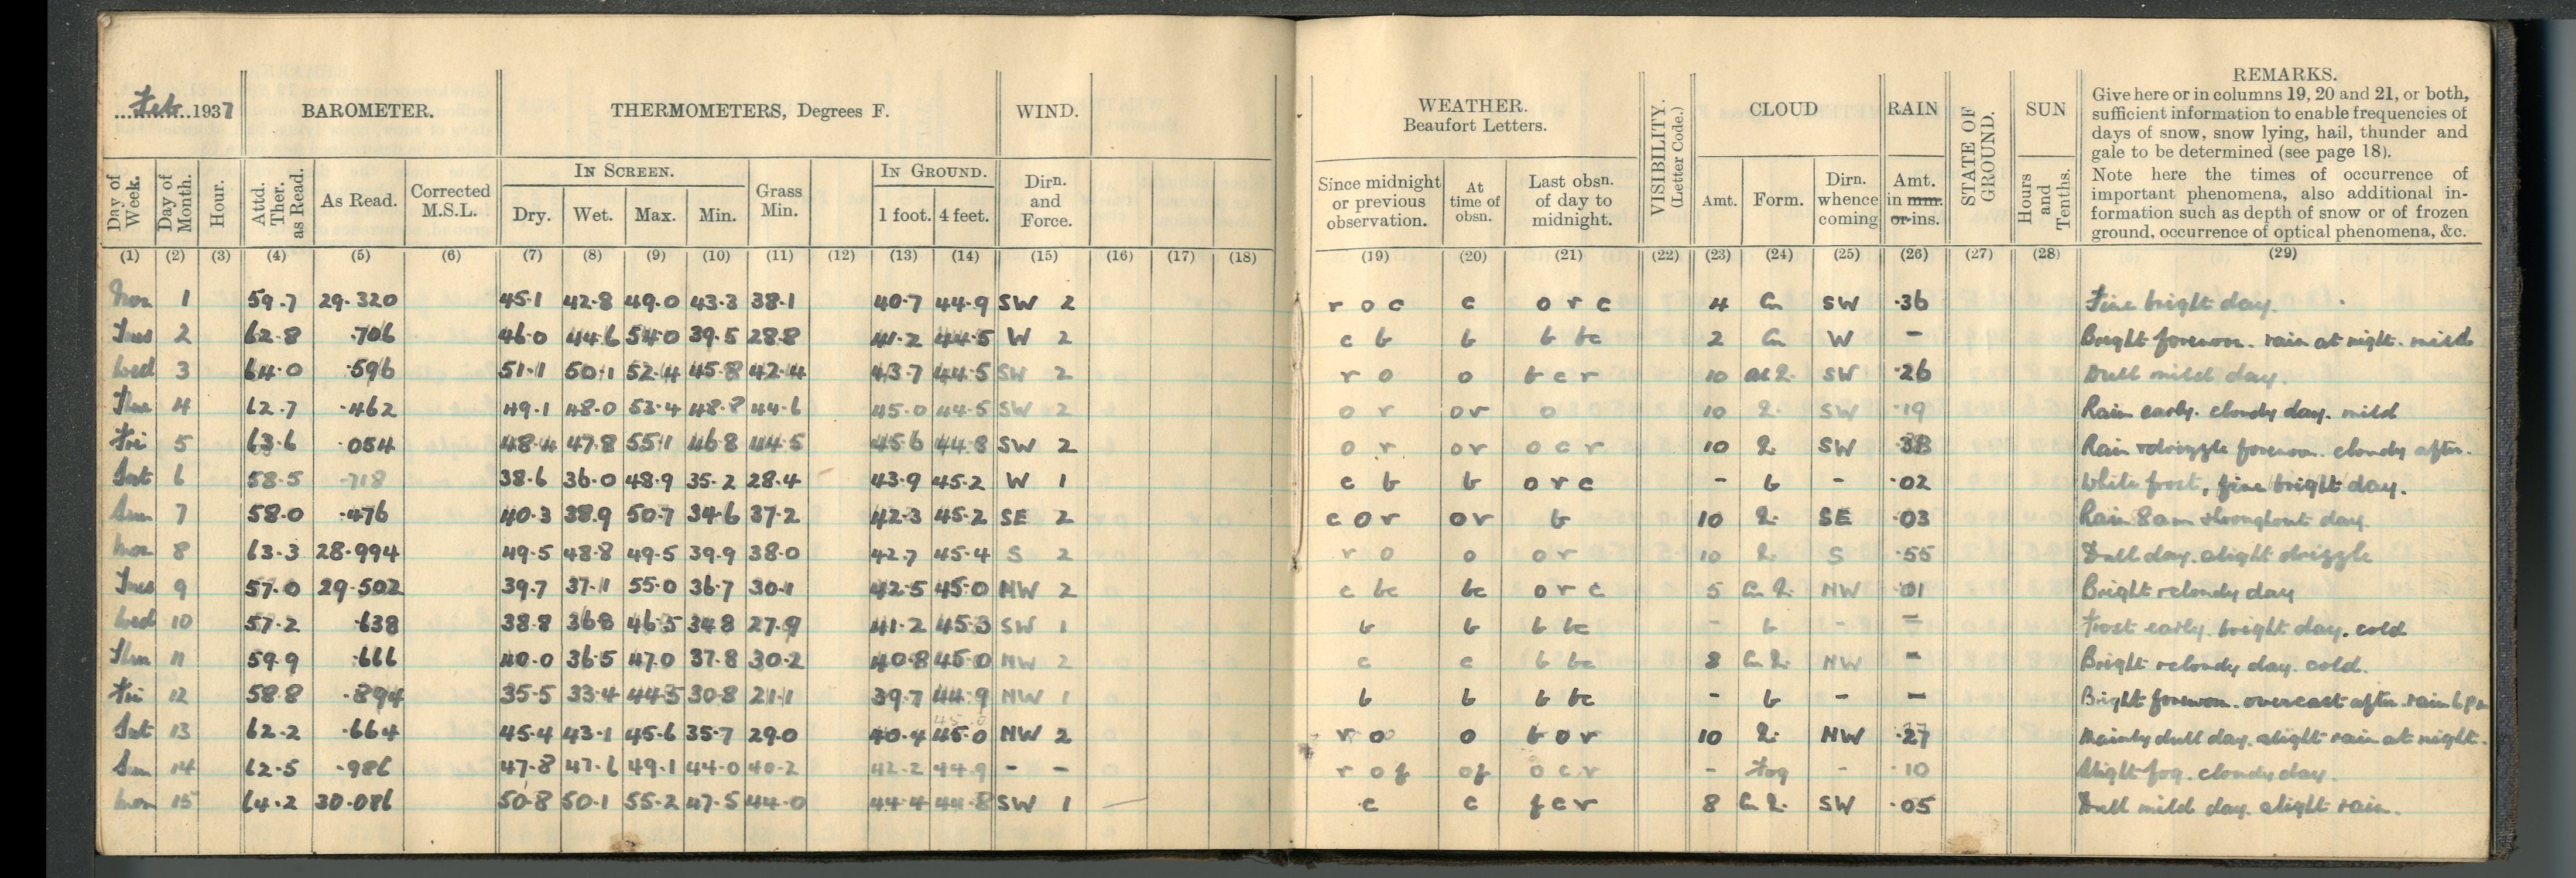 Feb. 1937
BAROMETER.
THERMOMETERS, Degrees F.
WIND.
Day of Week.
Day of Month.
Hour.
Attd. Ther. as Read.
As Read.
Corrected M.S.L.
IN SCREEN.
Dry. Wet. Max. Min.
Grass Min.
IN GROUND.
1 foot. 4 feet.
Dirn. and Force.
(1) (2) (3) (4) (5) (6) (7) (8) (9) (10) (11) (12) (13) (14) (15) (16) (17) (18)
Mon 1 59.7 29.320 45.1 42.8 49.0 43.3 38.1 40.7 44.9 SW 2
Tues 2 62.8 .706 46.0 44.6 54.0 39.5 28.8 41.2 44.5 W 2
Wed 3 64.0 .596 51.1 50.1 52.4 45.8 42.4 43.7 44.5 SW 2
Thur 4 62.7 .462 49.1 48.0 53.4 48.8 44.6 45.0 44.5 SW 2
Fri 5 63.6 .054 48.4 47.8 55.1 46.8 44.5 45.6 44.8 SW 2
Sat 6 58.5 .718 38.6 36.0 48.9 35.2 28.4 43.9 45.2 W 1
Sun 7 58.0 .476 40.3 38.9 50.7 34.6 37.2 42.3 45.2 SE 2
Mon 8 63.3 28.994 49.5 48.8 49.5 39.9 38.0 42.7 45.4 S 2
Tues 9 57.0 29.502 39.7 37.1 55.0 36.7 30.1 42.5 45.0 NW 2
Wed 10 57.2 .638 38.8 36.8 46.5 34.8 27.9 41.2 45.3 SW 1
Thur 11 59.9 .666 40.0 36.5 47.0 37.8 30.2 40.8 45.0 NW 2
Fri 12 58.8 .894 35.5 33.4 44.5 30.8 21.1 39.7 44.9 NW 1
Sat 13 62.2 .664 45.4 43.1 45.6 35.7 29.0 40.4 45.0 NW 2
Sun 14 62.5 .986 47.8 47.6 49.1 44.0 40.2 42.2 44.9 - -
Mon 15 64.2 30.086 50.8 50.1 55.2 47.5 44.0 44.4 44.8 SW 1
WEATHER.
Beaufort Letters.
VISIBILITY.
(Letter Code.)
CLOUD
RAIN
STATE OF GROUND.
SUN
REMARKS.
Give here or in columns 19, 20 and 21, or both,
sufficient information to enable frequencies of
days of snow, snow lying, hail, thunder and
gale to be determined (see page 18).
Note here the times of occurrence of
important phenomena, also additional in-
formation such as depth of snow or of frozen
ground, occurrence of optical phenomena, &c.
Since midnight or previous observation.
At time of obsn.
Last obsn. of day to midnight.
Amt. Form.
Dirn. whence coming
Amt. in mm. or ins.
Hours and Tenths.
(19) (20) (21) (22) (23) (24) (25) (26) (27) (28) (29)
r o c c o r c 4 Cu SW .36 Fine bright day.
c b b b bc 2 Cu W - Bright forenoon. rain at night. mild
r o o b c r 10 SW .26 Dull mild day.
o r or o 10 SW .19 Rain early. cloudy day. mild
o r or o c r 10 SW .38 Rain & drizzle forenoon. cloudy after.
c b b o r c - b - .02 White frost, fine bright day.
c o r or b 10 SE .03 Rain 8am & throughout day.
r o o o r 10 S .55 Dull day. slight drizzle
c bc bc o r c 5 Cu NW .01 Bright & cloudy day
b b b bc - b - - Frost early. bright day. cold
c c b bc 8 Cu NW - Bright & cloudy day. cold.
b b b bc - b - - Bright forenoon. overcast after. rain 6 pm
r o o b o r 10 NW .27 Mainly dull day. slight rain at night.
r o f of o c r - Fog - .10 Slight fog. cloudy day.
c c f c r 8 Cu SW .05 Dull mild day. slight rain.